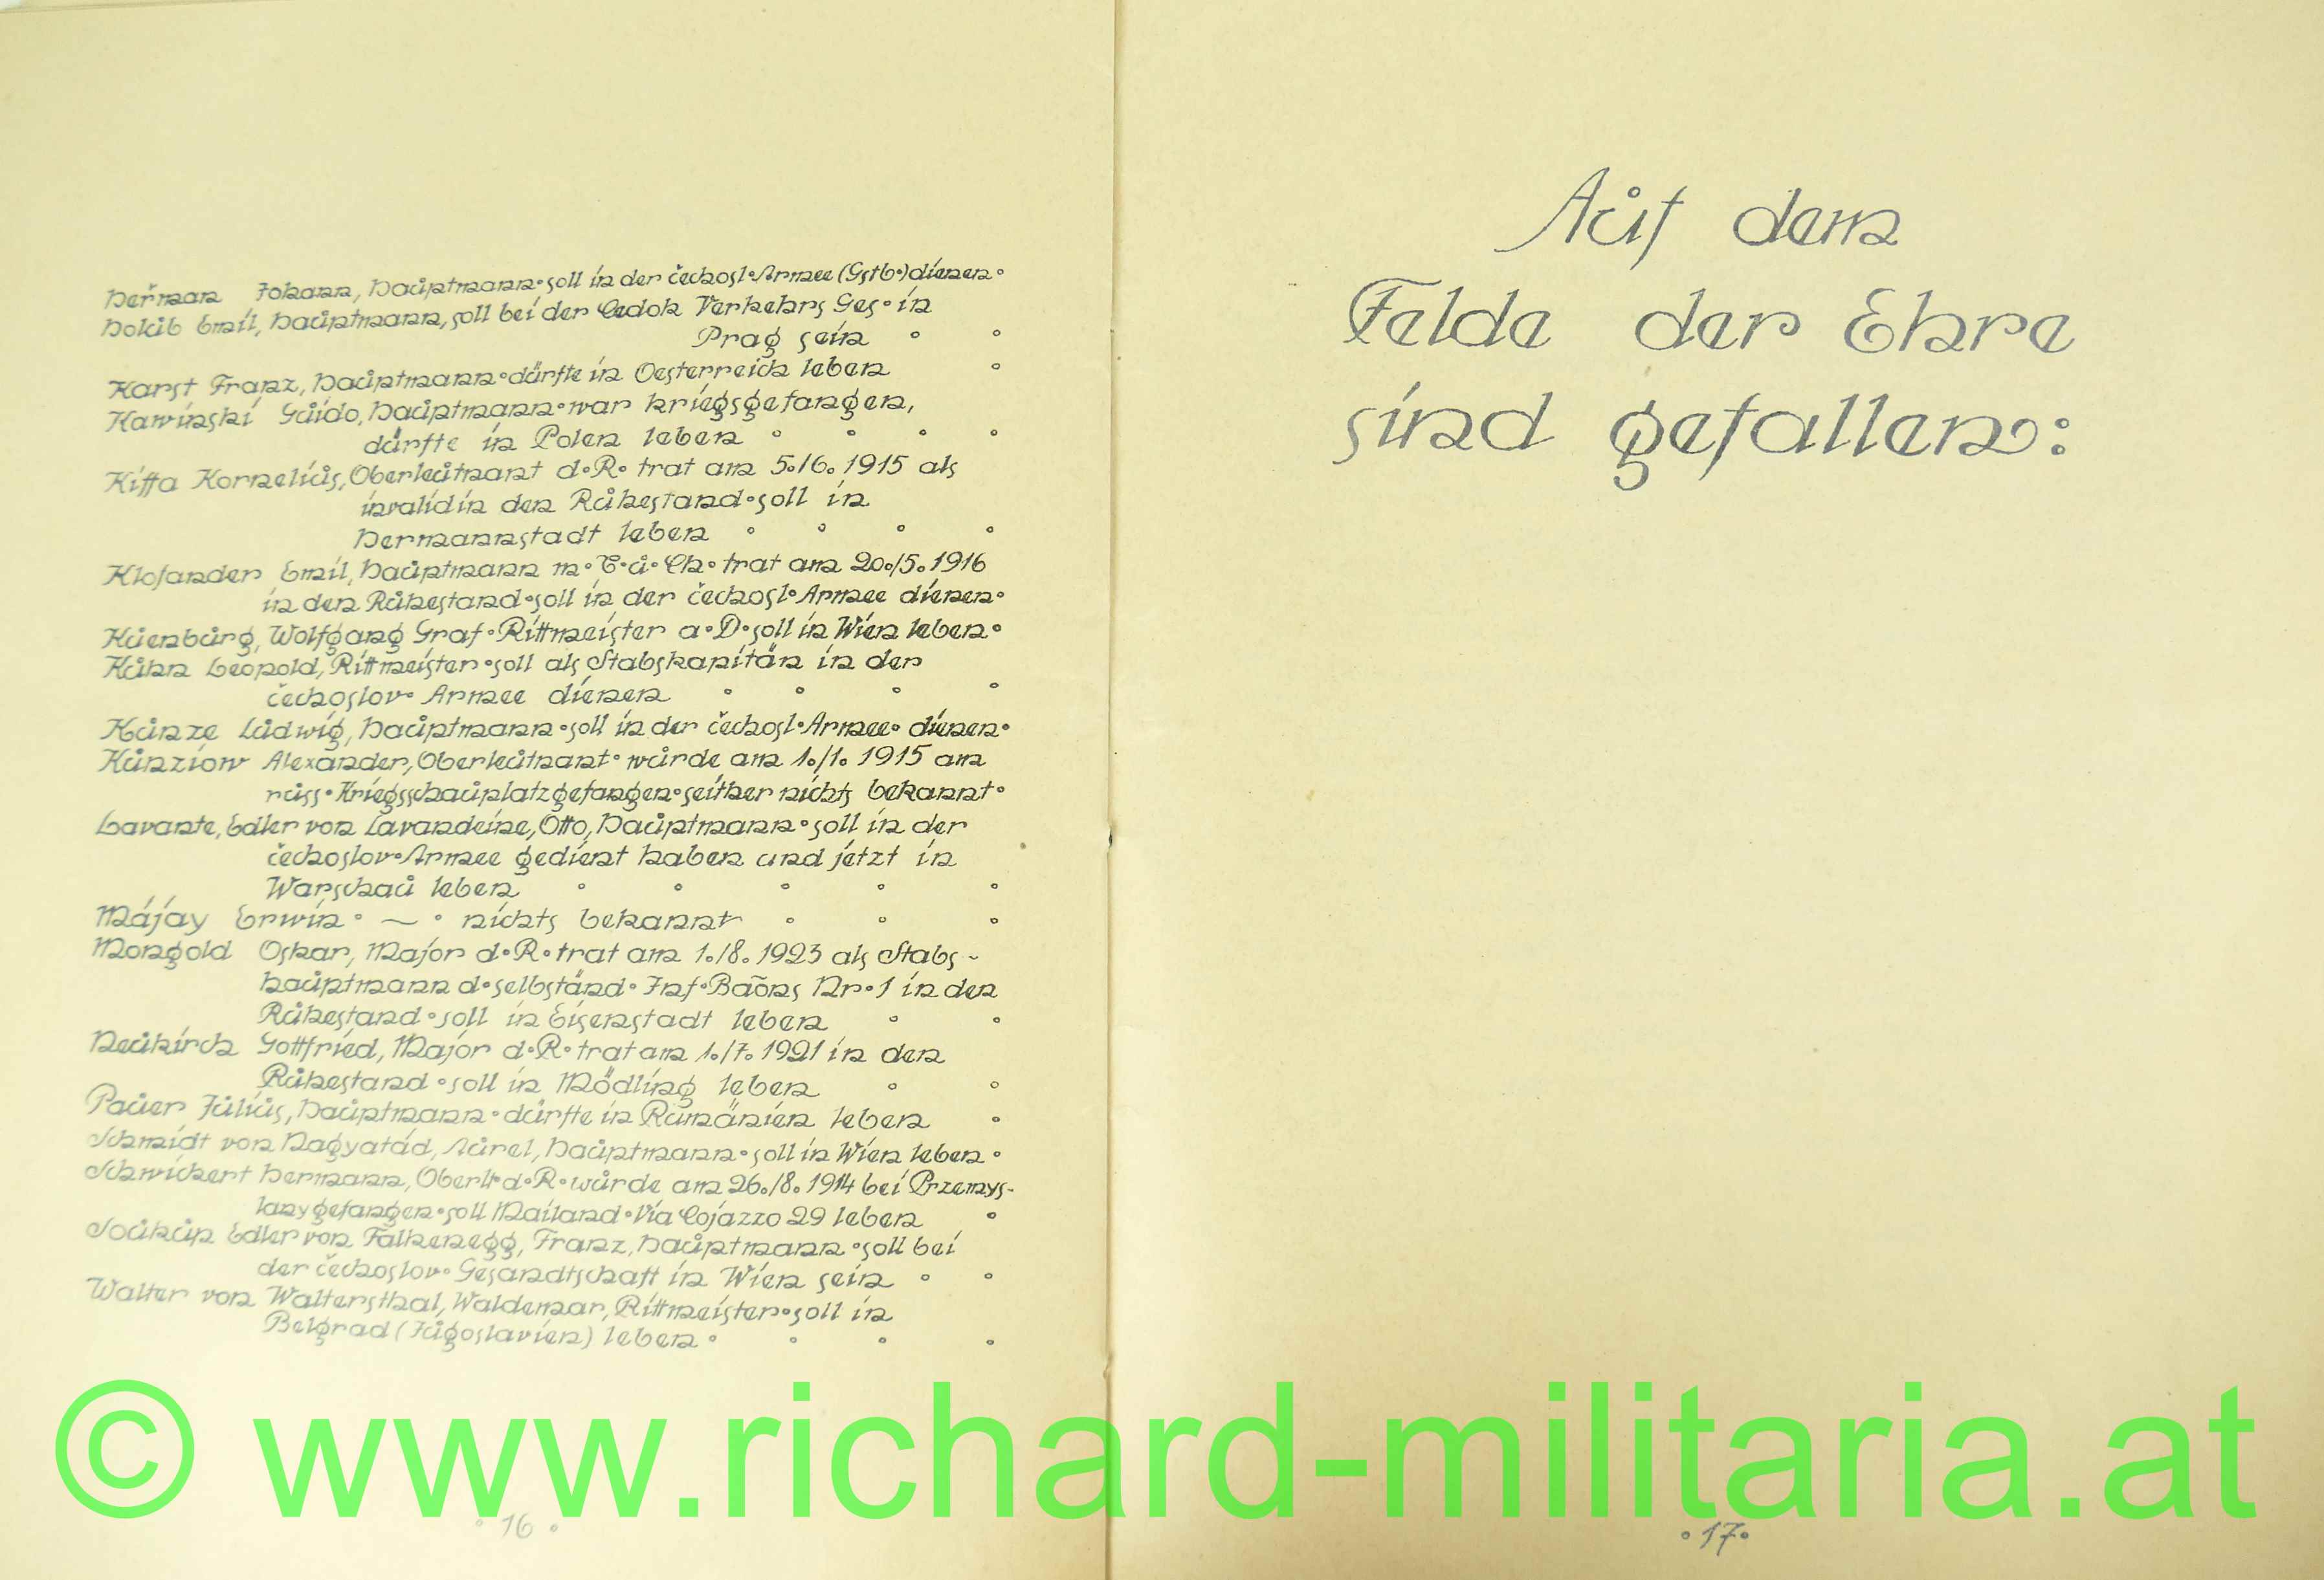 Heřman Johann, Hauptmann. soll in der čechosl. Armee (Gstb.) dienen.
Holub Emil, Hauptmann, soll bei der Cedok Verkehrs Ges. in
Prag sein
Karst Franz, Hauptmann. dürfte in Oesterreich leben
Kawinski Guido, Hauptmann. war kriegsgefangen,
dürfte in Polen leben
Kiffa Kornelius, Oberleutnant d. R. trat am 5./6. 1915 als
invalid in den Ruhestand. soll in
Hermannstadt leben
Klofander Emil, Hauptmann m. T. u. Ch. trat am 20./5. 1916
in den Ruhestand. soll in der čechosl. Armee dienen.
Küenburg, Wolfgang Graf. Rittmeister a. D. soll in Wien leben.
Kuhn Leopold, Rittmeister. soll als Stabskapitän in der
čechoslov. Armee dienen
Kunze Ludwig, Hauptmann. soll in der čechosl. Armee. dienen.
Kunziow Alexander, Oberleutnant. wurde am 1./1. 1915 am
russ. Kriegsschauplatz gefangen. seither nichts bekannt.
Lavante, Edler von Lavandeine, Otto, Hauptmann. soll in der
čechoslov. Armee gedient haben und jetzt in
Warschau leben
Májay Erwin. ~ . nichts bekannt
Mongold Oskar, Major d. R. trat am 1./8. 1923 als Stabs-
hauptmann d. selbständ. Inf. Baōns Nr. 1 in den
Ruhestand. soll in Eisenstadt leben
Neukirch Gottfried, Major d. R. trat am 1./7. 1921 in den
Ruhestand. soll in Mödling leben
Pauer Julius, Hauptmann. dürfte in Rumänien leben
Schmidt von Nagyatád, Aurel, Hauptmann. soll in Wien leben.
Schwickert Hermann, Oberlt. d. R. wurde am 26./8. 1914 bei Przemys-
lany gefangen. soll Mailand. Via Cojazzo 29 leben
Soukup Edler von Falkenegg, Franz, Hauptmann. soll bei
der čechoslov. Gesandtschaft in Wien sein
Walter von Waltersthal, Waldemar, Rittmeister. soll in
Belgrad (Jugoslavien) leben.
. 16 .
Auf dem
Felde der Ehre
sind gefallen:
. 17 .
© www.richard-militaria.at